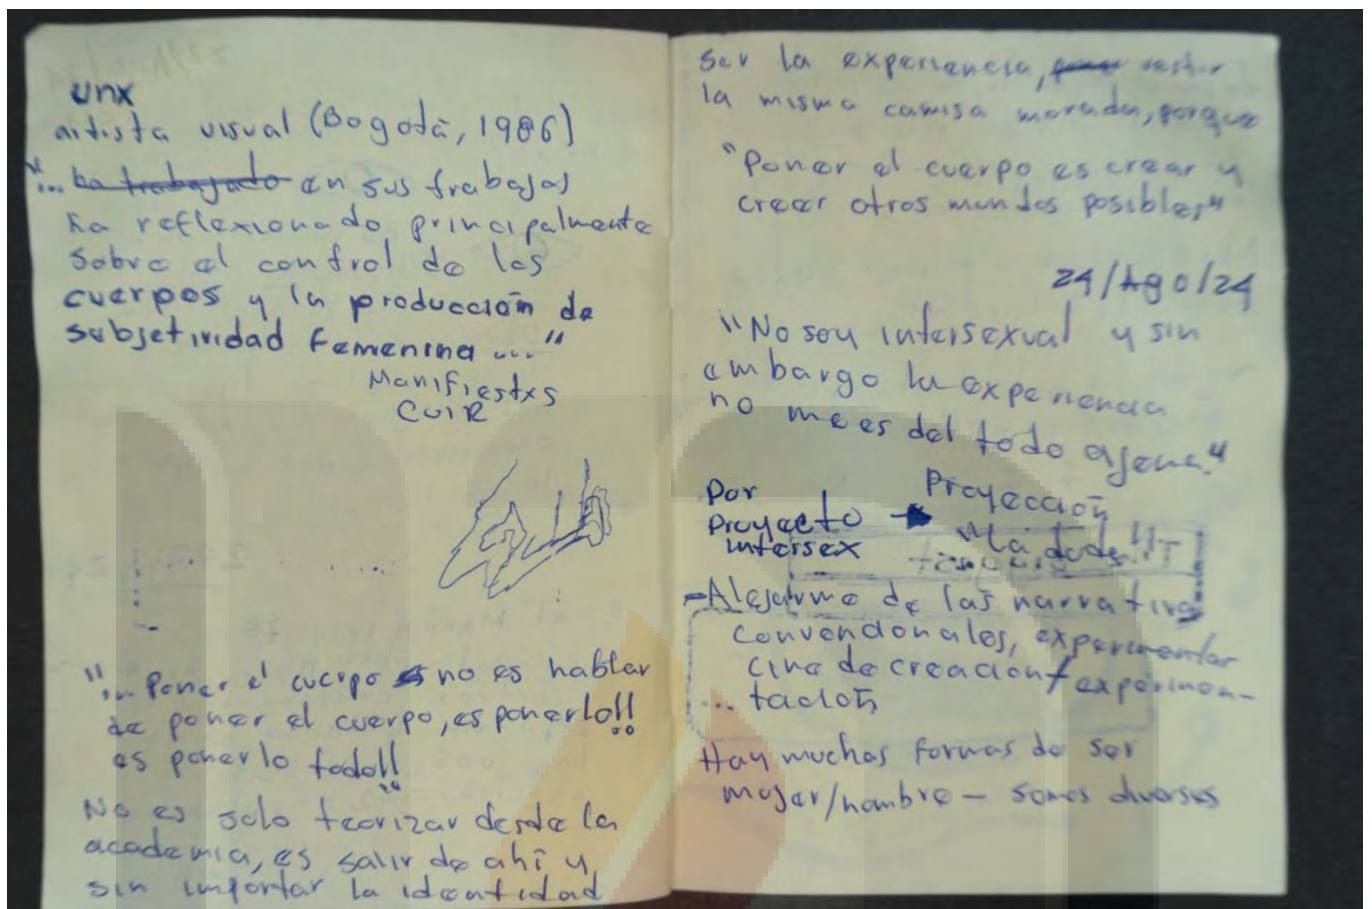 unx
artista visual (Bogotá, 1986)
"... ha trabajado en sus trabajos
ha reflexionado principalmente
sobre el control de los
cuerpos y la producción de
subjetividad femenina ..."
Manifiestxs
CUIR
"... Poner el cuerpo no es hablar
de poner el cuerpo, es ponerlo!!
es ponerlo todo!!
No es solo teorizar desde la
academia, es salir de ahí y
sin importar la identidad
ser la experiencia, vestir
la misma camisa morada, porque
"Poner el cuerpo es crear y
creer otros mundos posibles"
24/Ago/24
"No soy intersexual y sin
embargo la experiencia
no me es del todo ajena."
Por
Proyecto
intersex
Proyección
- Alejarme de las narrativa
convencionales, experimentar
cine de creación/experimen-
... tación
Hay muchas formas de ser
mujer/hombre - somos diversxs